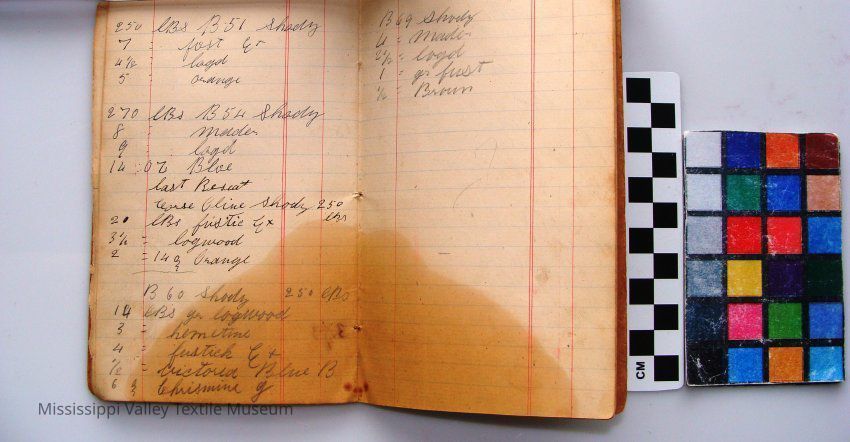 250 lBs B51 Shody
7 = fost Ex
4½ logd
5 = orange
270 lBs B54 Shody
8 = Mader
9 logd
14 : 0% Blue
last
Olive Shody 250 lbs
20 lBs fustic Ex
3½ = logwood
2 = 14 Orange
B 60 Shody 250 lBs
14 lBs gr logwood
3 = hemetine
4 = fustick Ex
½ = Victored Blue B
6 Chrismine
B49 Shody
4 = Mader
2½ = logd
1 = gr fust
½ = Brown
CM
Mississippi Valley Textile Museum